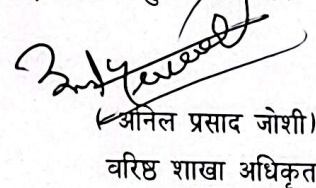 (अनिल प्रसाद जोशी)
वरिष्ठ शाखा अधिकृत